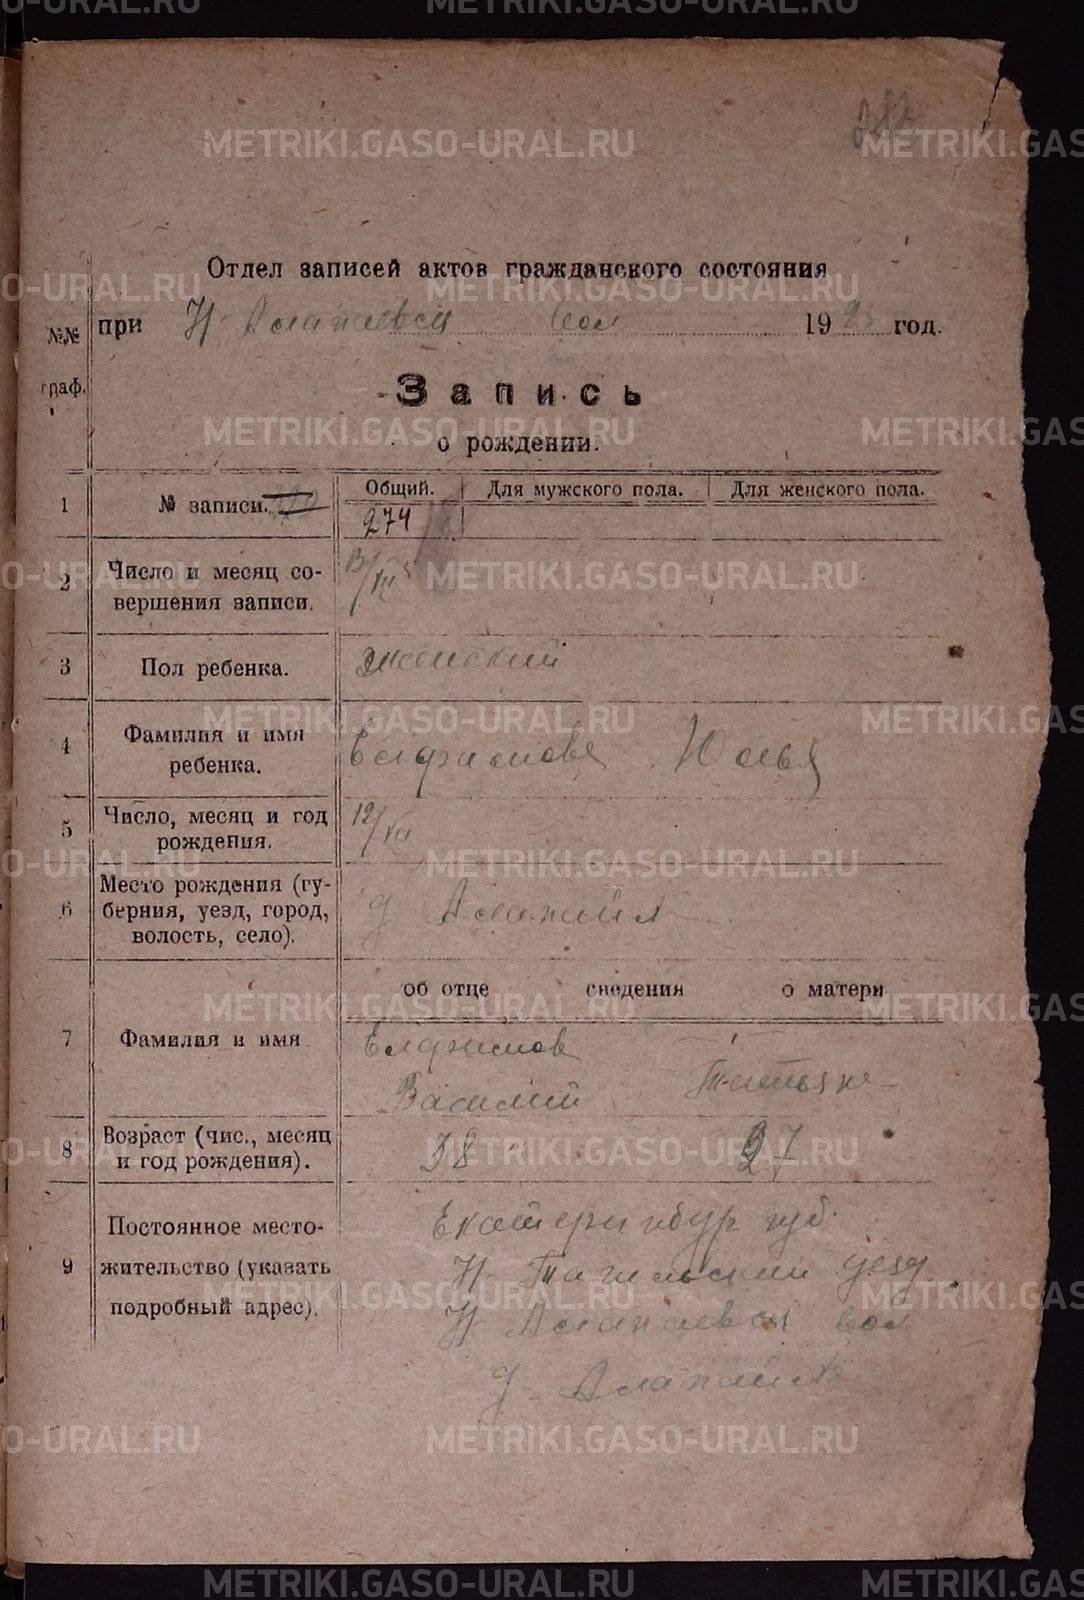 282
Отдел записей актов гражданского состояния
№№ граф.
при Н Алапаевск вол 1923 год.
Запись
о рождении.
1 № записи. Общий. Для мужского пола. Для женского пола.
274
2 Число и месяц со-
вершения записи.
13/XII
3 Пол ребенка. женский
4 Фамилия и имя
ребенка.
Елфимова Юлья
5 Число, месяц и год
рождения.
12/XII
6 Место рождения (гу-
берния, уезд, город,
волость, село).
д Алапаиха
об отце сведения о матери
7 Фамилия и имя
Елфимов
Василий Татьяна
8 Возраст (чис., месяц
и год рождения).
38 37
9 Постоянное место-
жительство (указать
подробный адрес).
Екатеринбур губ.
Н Тагильский уезд
Н Алапаевск вол
д Алапаиха
METRIKI.GASO-URAL.RU